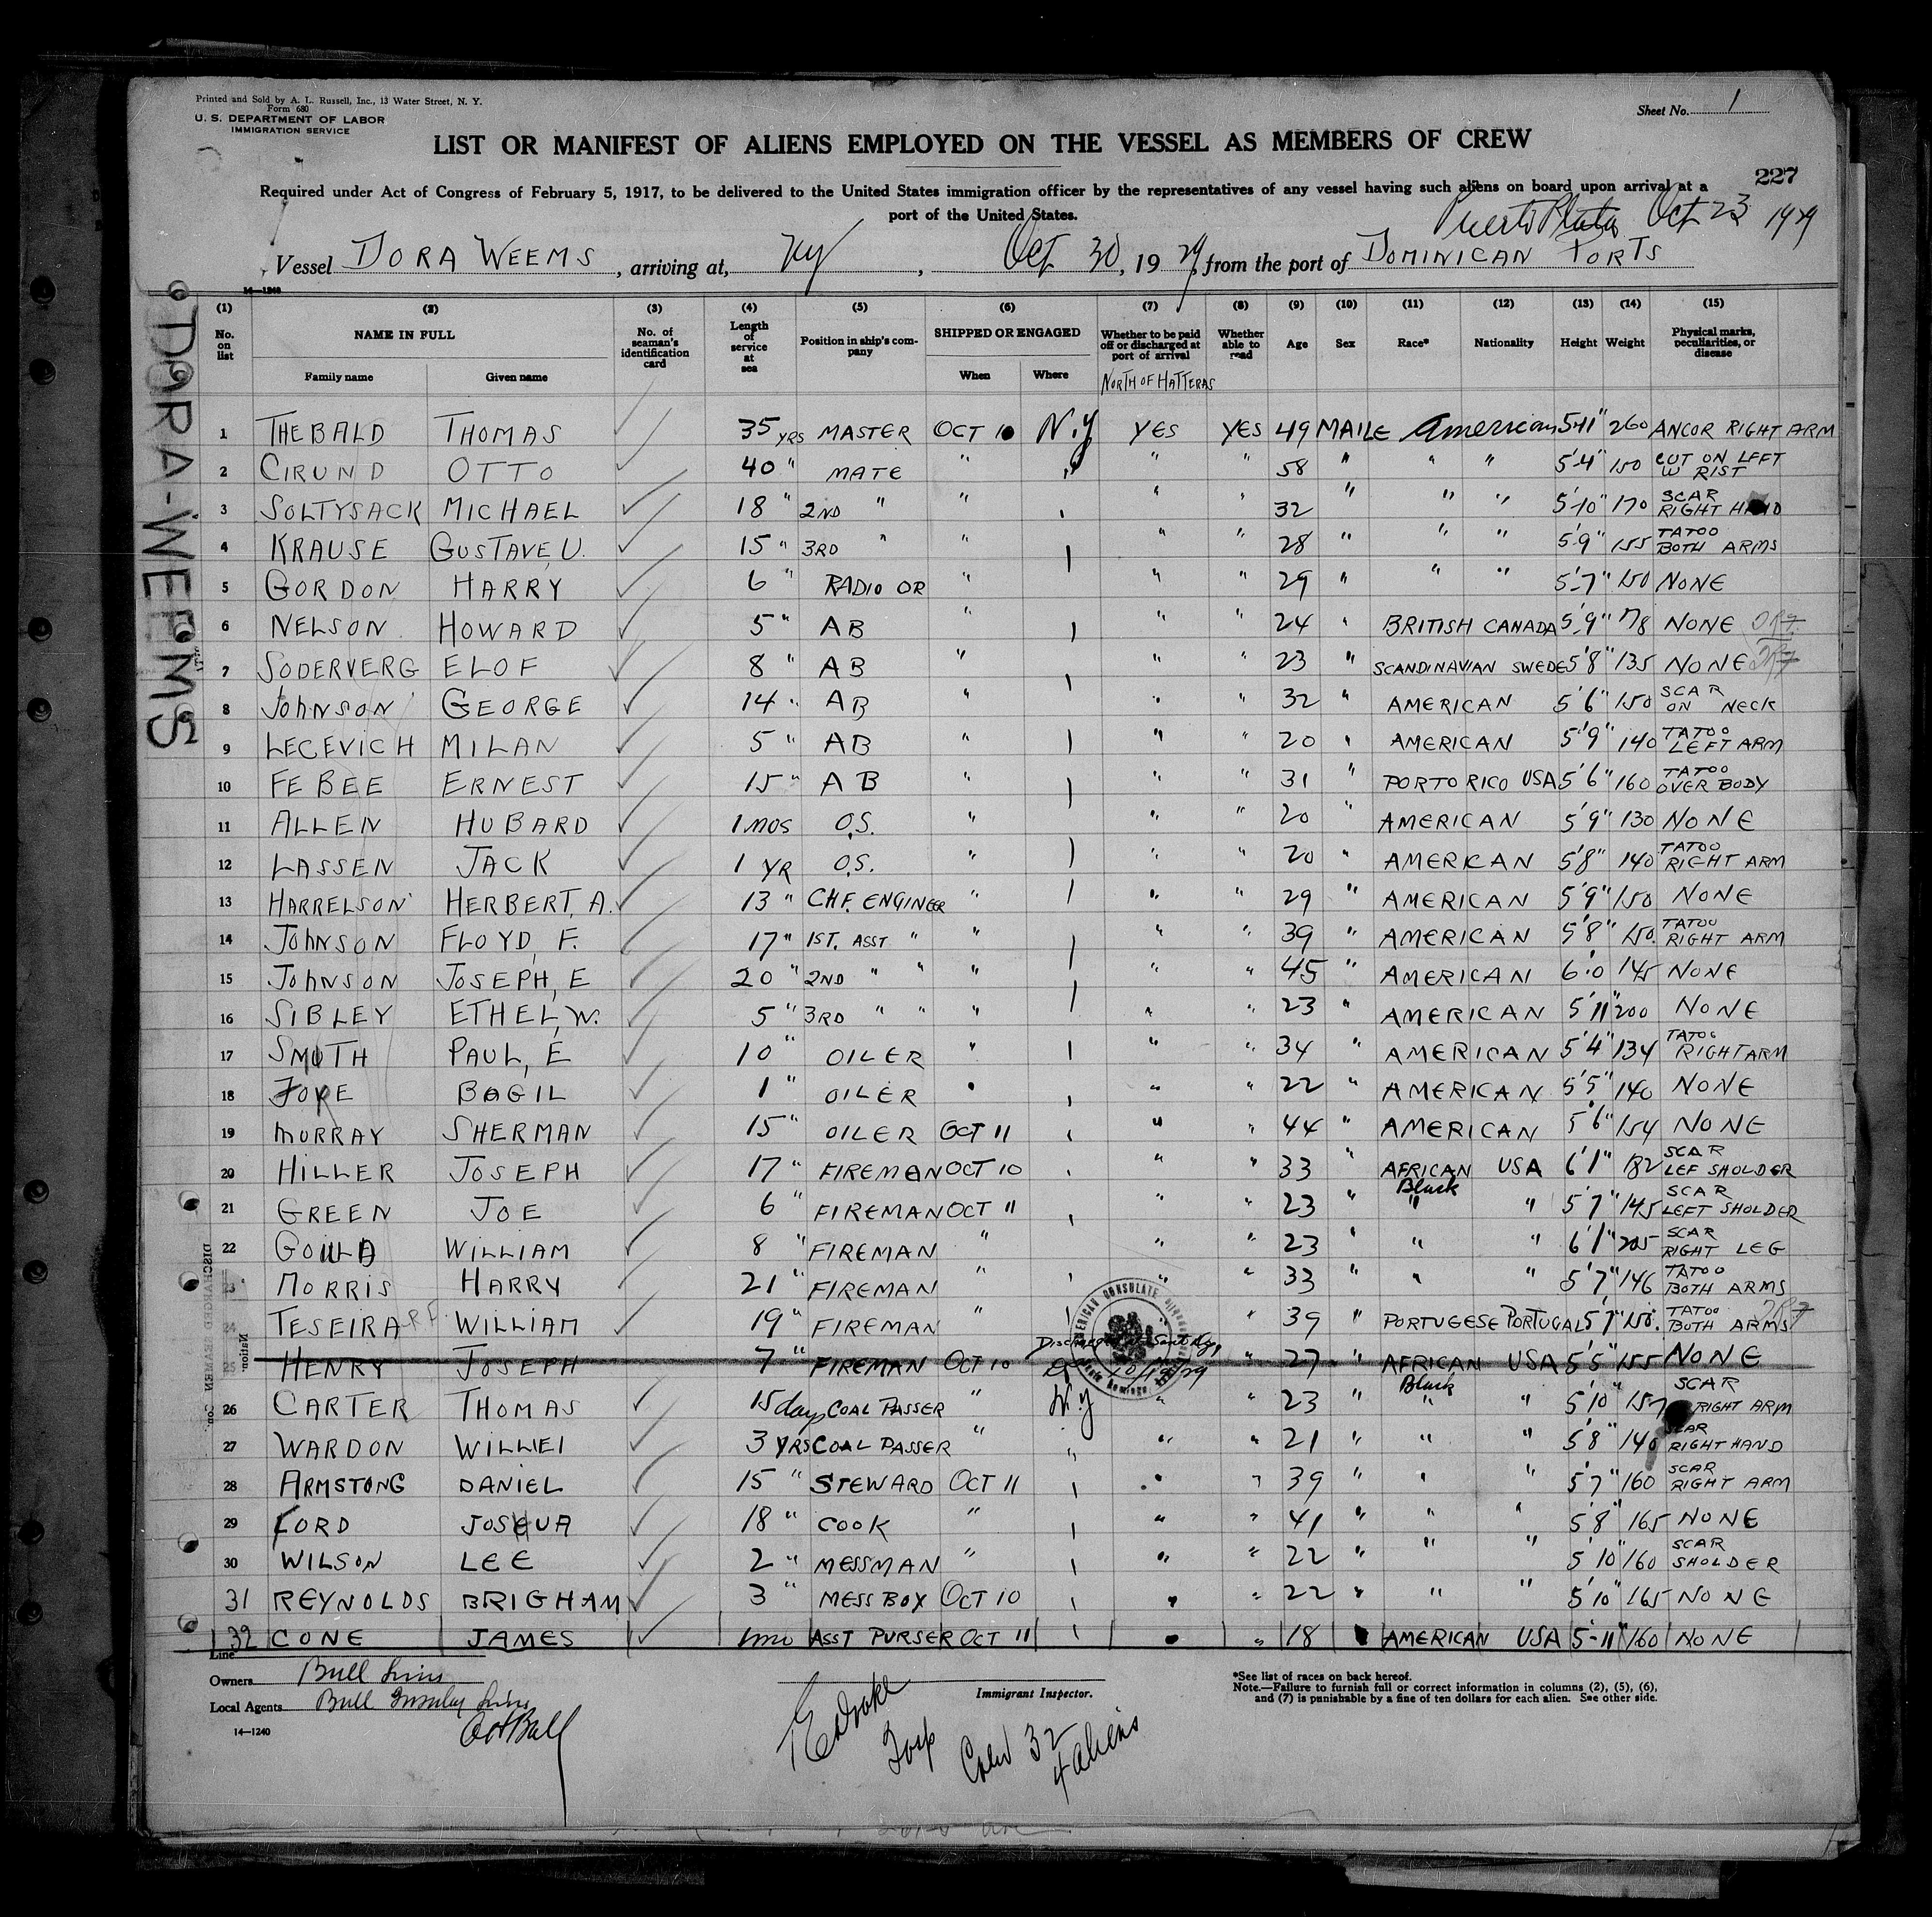 Printed and Sold by A. L. Russell, Inc., 13 Water Street, N. Y.
Form 680
U. S. DEPARTMENT OF LABOR
IMMIGRATION SERVICE
Sheet No. 1
LIST OR MANIFEST OF ALIENS EMPLOYED ON THE VESSEL AS MEMBERS OF CREW
227
Required under Act of Congress of February 5, 1917, to be delivered to the United States immigration officer by the representatives of any vessel having such aliens on board upon arrival at a
port of the United States.
Puerto Plata Oct 23 1929
Vessel DORA WEEMS, arriving at, NY, Oct 30, 1929, from the port of DOMINICAN PORTS
14—1240
DORA-WEEMS
(1) (2) (3) (4) (5) (6) (7) (8) (9) (10) (11) (12) (13) (14) (15)
No. on list NAME IN FULL Family name Given name No. of seaman's identification card Length of service at sea Position in ship's company SHIPPED OR ENGAGED When Where Whether to be paid off or discharged at port of arrival Whether able to read Age Sex Race* Nationality Height Weight Physical marks, peculiarities, or disease
NORTH OF HATTERAS
1 THEBALD THOMAS 35 YRS MASTER OCT 10 N.Y YES YES 49 MAILE American 5-11" 260 ANCOR RIGHT ARM
2 CIRUND OTTO 40 " MATE " " " " 58 " " " 5'-4" 150 CUT ON LEFT W RIST
3 SOLTYSACK MICHAEL 18 " 2ND " " " " " 32 " " " 5'-10" 170 SCAR RIGHT HAND
4 KRAUSE GUSTAVE, U. 15 " 3RD " " " " " 28 " " " 5-9" 155 TATOO BOTH ARMS
5 GORDON HARRY 6 " RADIO OR " " " 29 " " " 5'-7" 150 NONE
6 NELSON HOWARD 5 " AB " " " " 24 " BRITISH CANADA 5'-9" 178 NONE
7 SODERVERG ELOF 8 " AB " " " " 23 " SCANDINAVIAN SWEDE 5'8" 135 NONE
8 JOHNSON GEORGE 14 " AB " " " 32 " AMERICAN 5'6" 150 SCAR ON NECK
9 LECEVICH MILAN 5 " AB " " " " 20 " AMERICAN 5'9" 140 TATOO LEFT ARM
10 FEBEE ERNEST 15 " AB " " " " 31 " PORTO RICO USA 5'6" 160 TATOO OVER BODY
11 ALLEN HUBARD 1 MOS O.S. " " " 20 " AMERICAN 5'9" 130 NONE
12 LASSEN JACK 1 YR O.S. " " " " 20 " AMERICAN 5'8" 140 TATOO RIGHT ARM
13 HARRELSON HERBERT, A. 13 " CHF. ENGINEER " " " " 29 " AMERICAN 5'9" 150 NONE
14 JOHNSON FLOYD, F. 17 " 1ST. ASST " " " " " 39 " AMERICAN 5'8" 150 TATOO RIGHT ARM
15 JOHNSON JOSEPH, E 20 " 2ND " " " " " 45 " AMERICAN 6'0 145 NONE
16 SIBLEY ETHEL, W. 5 " 3RD " " " " " " 23 " AMERICAN 5'11" 200 NONE
17 SMITH PAUL, E 10 " OILER " " " " 34 " AMERICAN 5'4" 134 TATOO RIGHT ARM
18 BAGIL 1 " OILER " " " " 22 " AMERICAN 5'5" 140 NONE
19 MURRAY SHERMAN 15 " OILER OCT 11 " " " 44 " AMERICAN 5'6" 154 NONE
20 HILLER JOSEPH 17 " FIREMAN OCT 10 " " " 33 " AFRICAN USA 6'1" 182 SCAR LEF SHOLDER
21 GREEN JOE 6 " FIREMAN OCT 11 " " " 23 " Black " " 5'7" 145 SCAR LEFT SHOLDER
22 GOULD WILLIAM 8 " FIREMAN " " " 23 " " " 6'1" 205 SCAR RIGHT LEG
23 MORRIS HARRY 21 " FIREMAN " " " " 33 " " " 5'7" 146 TATOO BOTH ARMS
24 TESEIRA WILLIAM 19 " FIREMAN " " " 39 " PORTUGESE PORTUGAL 5'7" 150. TATOO BOTH ARMS
25 HENRY JOSEPH 7 " FIREMAN OCT 10 Discharged " 27 " AFRICAN USA 5'5" 155 NONE
AMERICAN CONSULATE
26 CARTER THOMAS 15 days COAL PASSER " N.Y " " 23 " Black " " 5'10" 157 SCAR RIGHT ARM
27 WARDON WILLIEI 3 YRS COAL PASSER " " " " 21 " " " 5'8" 140 SCAR RIGHT HAND
28 ARMSTONG DANIEL 15 " STEWARD OCT 11 " " " 39 " " " 5'7" 160 SCAR RIGHT ARM
29 FORD JOSHUA 18 " COOK " " " " 41 " " " 5'8" 165 NONE
30 WILSON LEE 2 " MESSMAN " " " " 22 " " " 5'10" 160 SCAR SHOLDER
31 REYNOLDS BRIGHAM 3 " MESS BOY OCT 10 " " " 22 " " " 5'10" 165 NONE
32 CONE JAMES 1 mo ASST PURSER OCT 11 " " " 18 " AMERICAN USA 5-11" 160 NONE
Line
Owners Bull Lines
Local Agents Bull Insular Line
14—1240
Immigrant Inspector.
Insp
Crew 32
4 aliens
*See list of races on back hereof.
Note.—Failure to furnish full or correct information in columns (2), (5), (6),
and (7) is punishable by a fine of ten dollars for each alien. See other side.